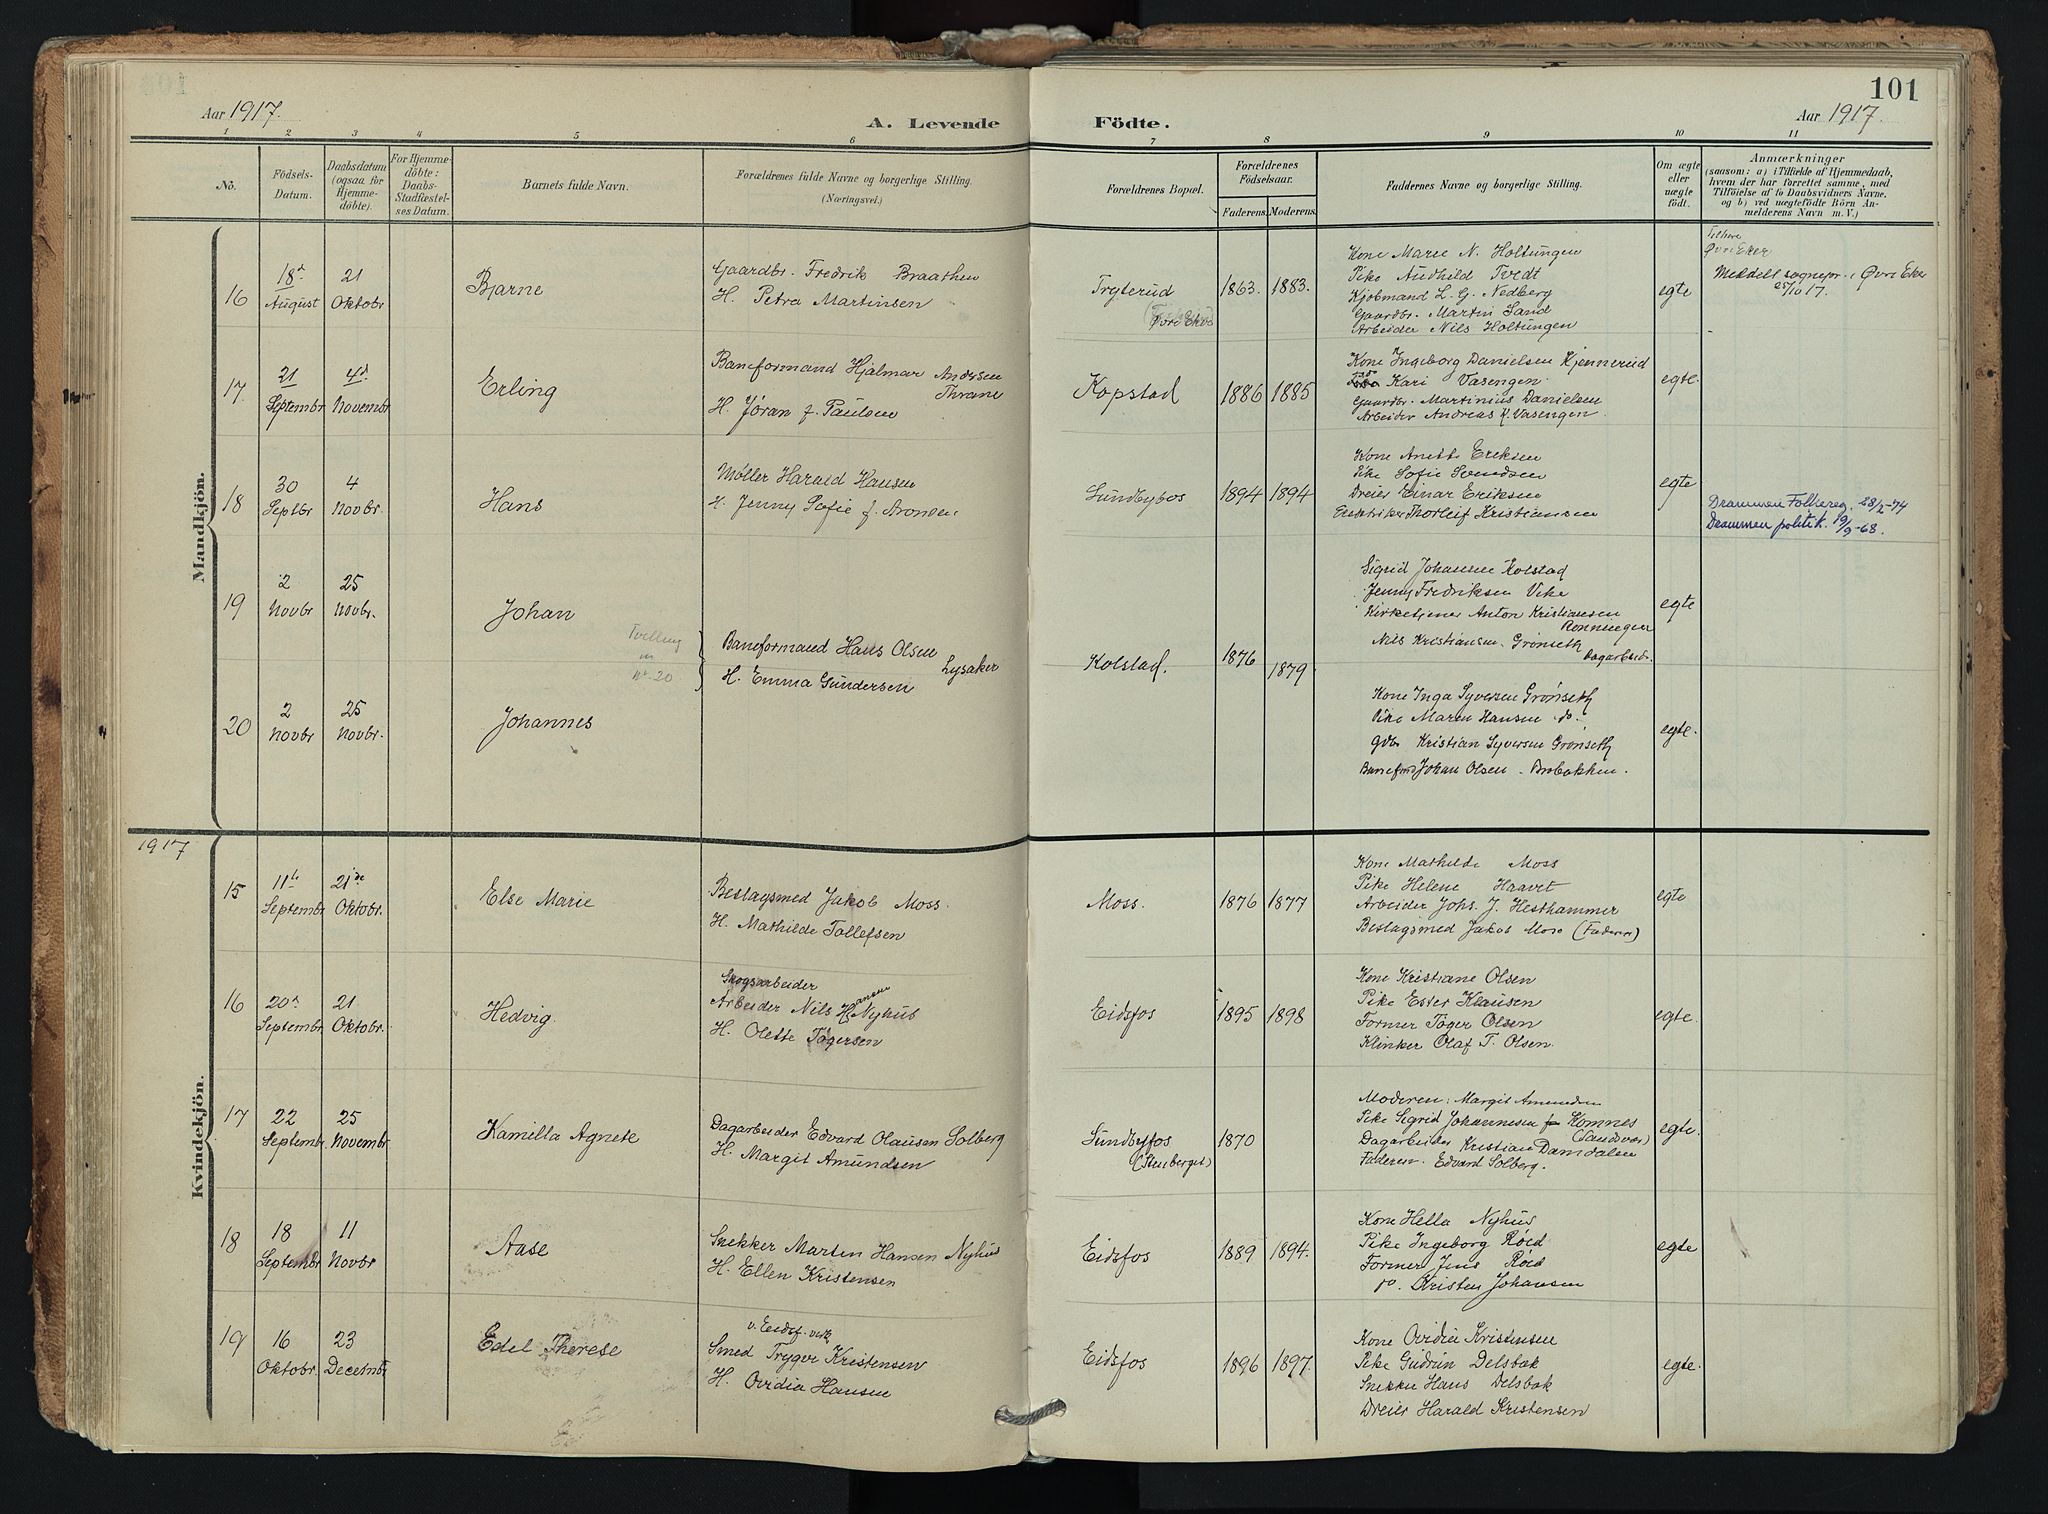 101
Aar 1917.
A. Levende Födte.
Aar 1917.
1 2 3 4 5 6 7 8 9 10 11
No.
Födsels-
Datum.
Daabsdatum
(ogsaa for
Hjemme-
döbte).
For Hjemme-
döbte:
Daabs-
Stadfæstel-
ses Datum.
Barnets fulde Navn.
Forældrenes fulde Navne og borgerlige Stilling.
(Næringsvei.)
Forældrenes Bopæl.
Forældrenes
Födselsaar.
Faderens. Moderens.
Faddernes Navne og borgerlige Stilling.
Om ægte
eller
uægte
födt.
Anmærkninger
(saasom: a) i Tilfælde af Hjemmedaab,
hvem der har forrettet samme, med
Tilföielse af to Daabsvidners Navne,
og b) ved uægtefödte Börn An-
melderens Navn m. V.)
Mandkjön.
16
18de
August
21
Oktobr
Bjarne
Gaardbr. Fredrik Braathen
H. Petra Martinsen
Tryterud
Øvre Eker
1863. 1883.
Kone Marie N. Holtungen
Pike Audhild Tvedt
Kjøbmand L. G. Nedberg
Gaardbr. Martin Sand
Arbeider Nils Holtungen
egte
Øvre Eker
Meddelt sognepr. i Øvre Eker
25/10 17.
17
21
Septembr
4de
Novembr
Erling
Baneformand Hjalmar Andersen
Thrane
H. Jøran f. Paulsen
Kopstad
1886 1885
Kone Ingeborg Danielsen Kjennerud
Kari Vasengen.
Gaardbr. Martinius Danielsen
Arbeider Andreas K. Vasengen.
egte.
18
30
Septbr
4
Novbr.
Hans
Møller Harald Hansen
H. Jenny Sofie f. Aronsen
Sundbyfos
1894 1894
Kone Anette Eriksen
Pike Sofie Svendsen
Dreier Einar Eriksen
Elektriker Thorleif Kristiansen
egte
Drammen Folkereg. 28/2-74
Drammen politik. 19/9-68.
19
2
Novbr
25
Novbr.
Johan
Tvilling
m
nr. 20
Baneformand Hans Olsen
Lysaker
H. Emma Gundersen
Kolstad.
1876 1879
Sigrid Johansen Kolstad
Jenny Fredriksen Vike
Kirketjener Anton Kristiansen
Rønningen
Nils Kristiansen. Grønseth
Dagarbeidr.
egte
20
2
Novbr
25
Novbr.
Johannes
Kone Inga Syversen Grønseth
Pike Maren Hansen do.
Gdbr Kristian Syversen Grønseth
Banefmd Johan Olsen - Brobakken.
egte.
1917
Kvindekjön.
15
11te
Septembr
21de
Oktobr.
Else Marie
Beslagsmed Jakob Moss.
H. Mathilde Tollefsen
Moss.
1876 1877
Kone Mathilde Moss
Pike Helene Haavet
Arbeider Johs. J. Hesthammer
Beslagsmed Jakob Moss (Faderen)
egte
16
20de
Septembr
21
Oktobr.
Hedvig.
Skogsarbeider
Arbeider Nils Hansen Nyhus
H. Olette Tøgersen
Eidsfos
1895 1898
Kone Kristiane Olsen
Pike Ester Klausen
Former Tøger Olsen
Klinker Olaf T. Olsen.
egte.
17
22
Septembr.
25
Novembr.
Kamilla Agnete
Dagarbeider Edvard Olausen Solberg
H. Margit Amundsen
Sundbyfos
(Stenberget)
1870
Moderen: Margit Amundsen
Pike Sigrid Johannesen Komnes
(Sandsvær)
Dagarbeider Kristian Damdalen
Faderen. Edvard Solberg.
egte.
18
18
Septembr
11
Novbr
Aase
Snekker Martin Hansen Nyhus
H. Ellen Kristensen
Eidsfos
1889 1894.
Kone Hella Nyhus
Pike Ingeborg Røed
Former Jens Røed
Do. Kristen Johansen
egte
19
16
Oktobr.
23
Decembr
Edel Therese
v. Eidsf. verk
Smed Trygve Kristensen
H. Ovidia Hansen
Eidsfos
1896 1897.
Kone Ovidia Kristensen
Pike Gudrun Delsbak
Snekker Hans Delsbak
Dreier Harald Kristensen
egte.